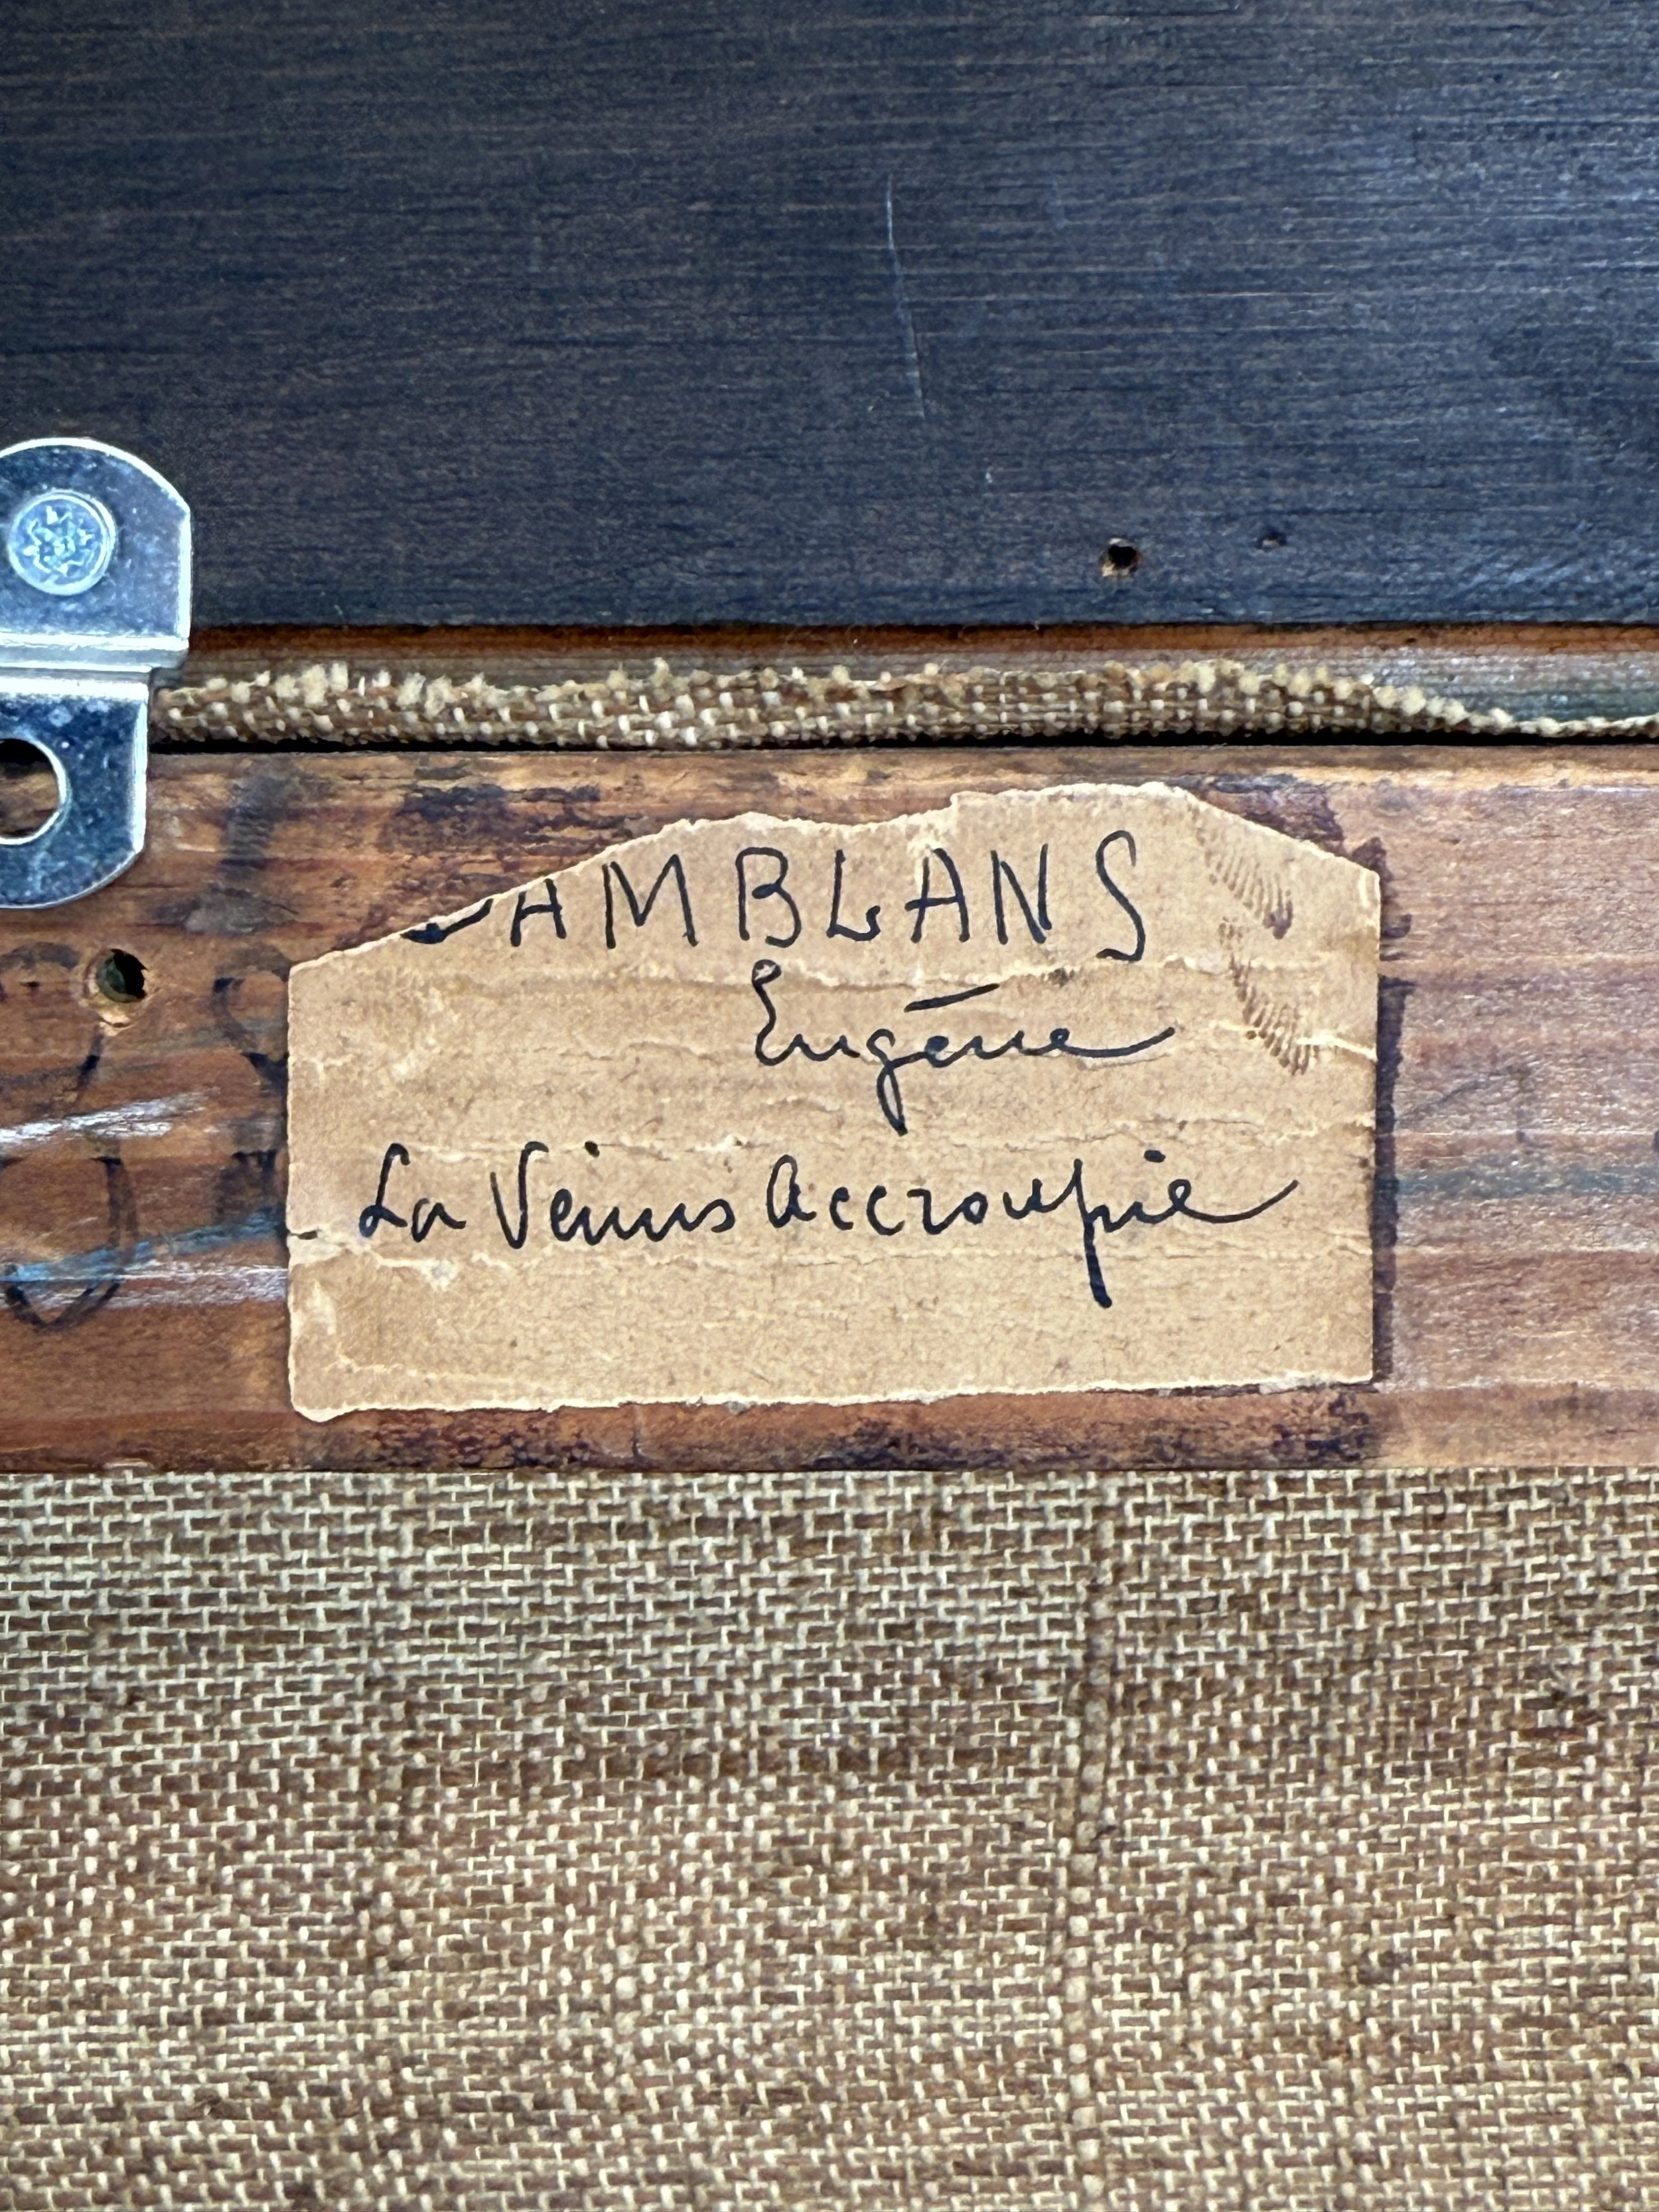 AMBLANS
Eugène
La Venus Accroupie